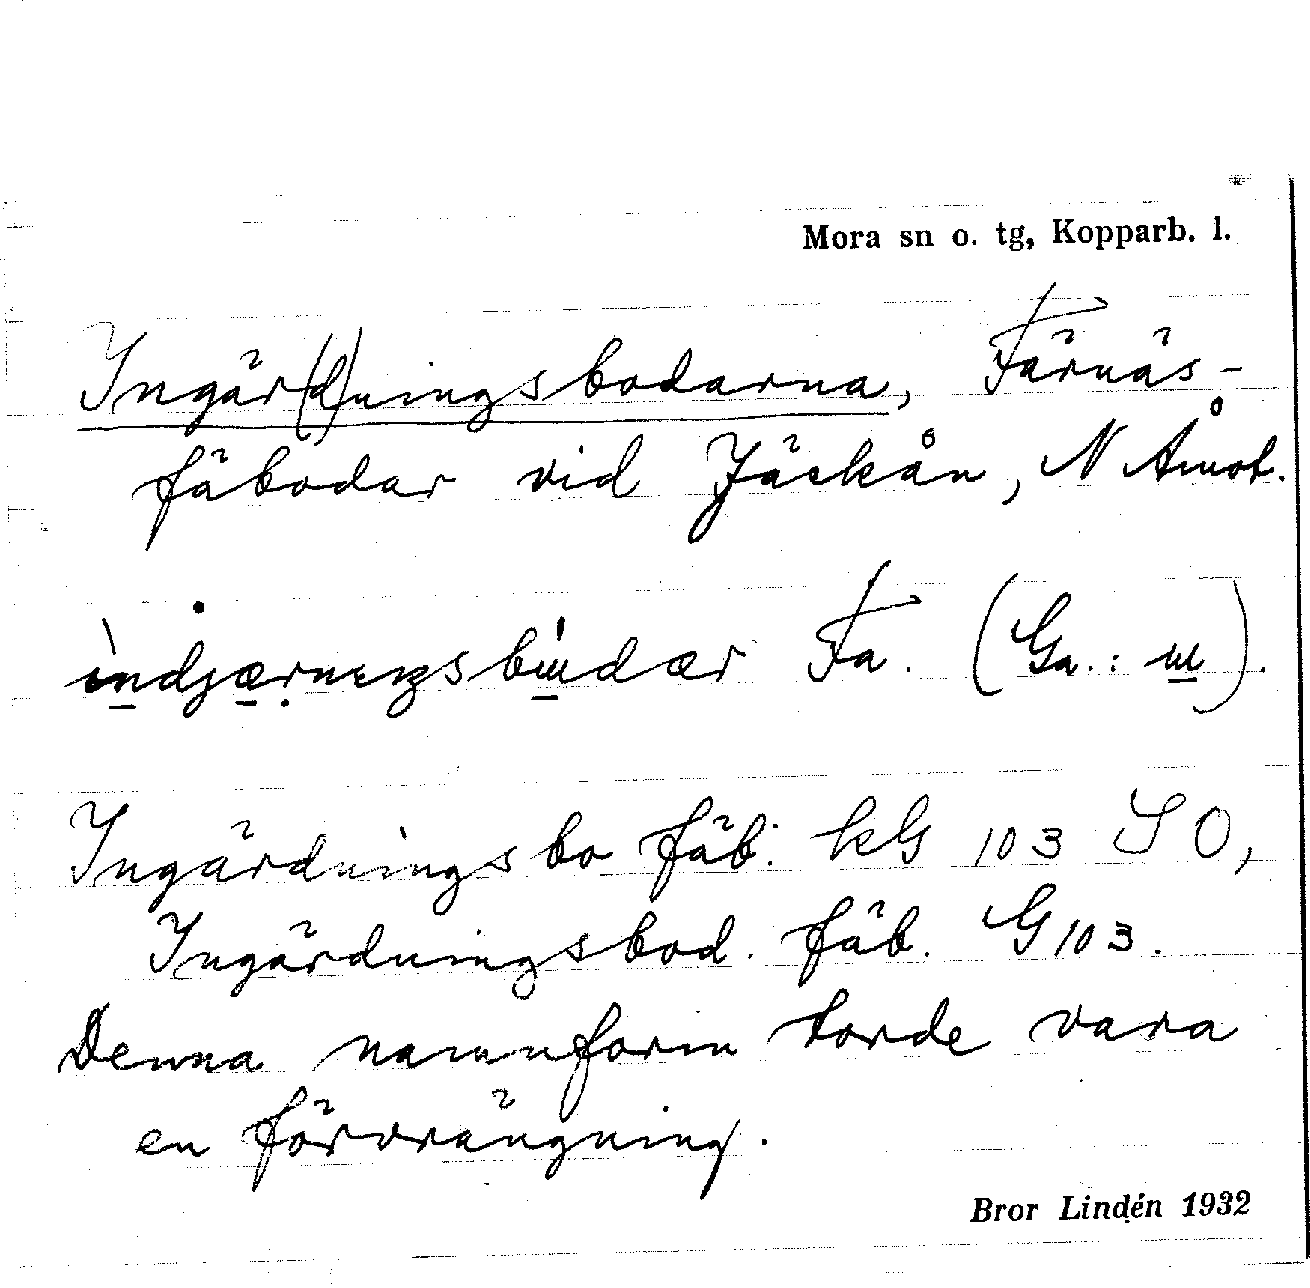 Mora sn o. tg, Kopparb. l.
Ingär(d)ningsbodarna, Färnäs-
fäbodar vid Jäckån, N Åmot.
Fa. (Ga.: ɯ).
Ingärdningsbo fäb. kG 103 SO,
Ingärdningsbod. fäb. G 103.
Denna namnform torde vara
en förvrängning.
Bror Lindén 1932